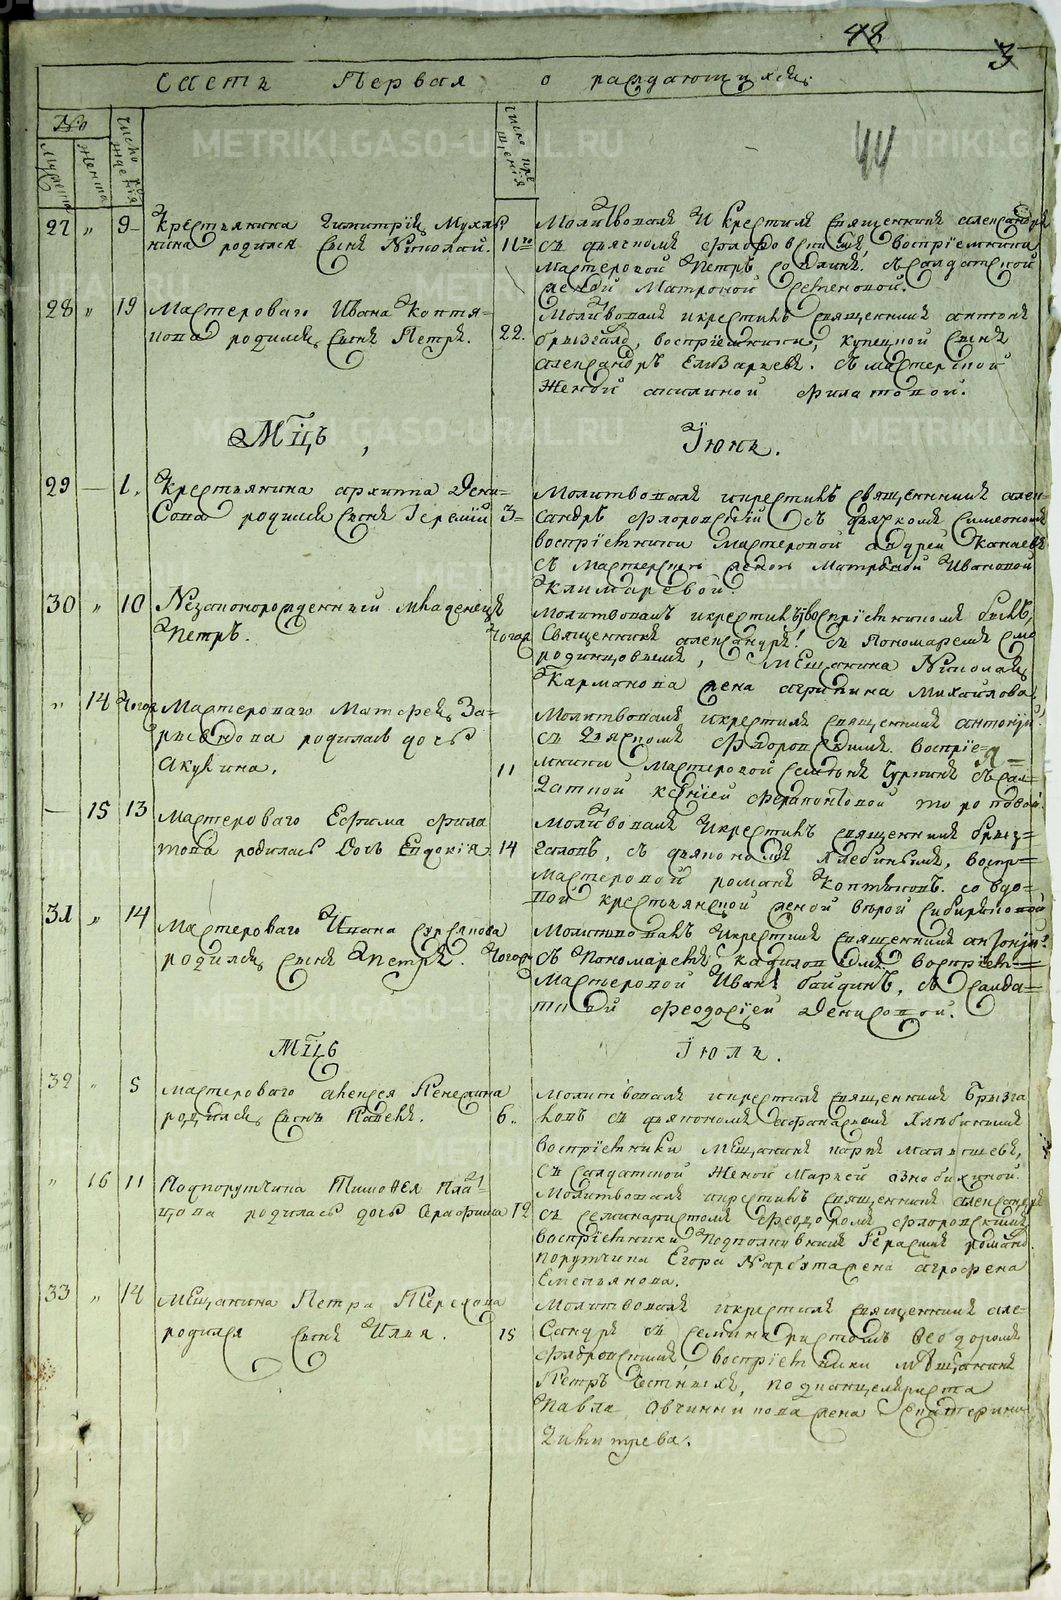 48
3
44
Часть Первая о раждающихся
№
Мужеска
Женска
число рождения
число крещения
27 " 9 Крестьянина Димитрїя
нина родился сынъ Николай. 11го
Молитвовалъ и крестилъ священникъ александръ
съ дьячкомъ Флоровскимъ воспрїемники
Мастеровой Петръ съ салдатской
женой Матроной Семеновой.
28 " 19 Мастероваго Ивана Коптя=
кова родился сынъ Петръ. 22.
Молитвовалъ и крестилъ священникъ антонъ
брызгаловъ, воспрїемники, купецкой сынъ
александръ Елизарьевъ. съ мастерской
женой акилиной Филатовой.
Мцъ, Їюнь.
29 — 1. Крестьянина архипа Дени=
сова родился сынъ Їеремїй 3=
Молитвовалъ и крестилъ священникъ алек=
сандръ Флоровскїй съ дьячкомъ Симеономъ
воспрїемники Мастеровой андрей Канаевъ
съ Мастерскою женою Матреной Ивановой
30 " 10 Незаконорожденный младенецъ
Петръ. тогож
Молитвовалъ и крестилъ воспрїемникомъ былъ,
Священникъ александръ съ Пономаремъ Смо
родинцовымъ, Мещанина Николая
Карманова жена агрипина Михайлова
" 14 тогож Мастероваго Матфея За=
родилась дочь
Акулина. 11
Молитвовалъ и крестилъ священникъ антонїй
съ Дьячкомъ Флоровскимъ. воспрїе=
мники Мастеровой съ сал=
даткой ксенїей
— 15 13 Мастероваго Ефима Фила
това родилась дочь Евдокїя 14
Молитвовалъ и крестилъ священникъ брыз=
галовъ, съ дьякономъ Хлебинымъ, воспр=
Мастеровой романъ Коптяковъ. со вдо=
вой крестьянской женой верой сибиряковой
31 " 14 Мастероваго Ивана Сурсякова
родился сынъ Петръ. тогож
Молитвовалъ и крестилъ священникъ антонїй
съ Пономаремъ кадиловскимъ воспрїем=
Мастеровой Иванъ байдинъ, съ салда=
ткой Феодосїей Денисовой.
Мцъ Їюль.
32 " 5 Мастероваго алексея
родился сынъ Павелъ. 6.
Молитвовалъ и крестилъ священникъ Брызга
ловъ съ дьякономъ афанасьемъ Хлебинымъ
воспрїемники Мещанинъ карпъ Малышевъ,
съ Салдатской женой Марьей ознобихиной.
" 16 11 Подпорутчика Тимофея
цова родилась дочь Серафима 12
Молитвовалъ и крестилъ священникъ александръ
съ семинаристомъ Феодоромъ Флоровскимъ
воспрїемники Подполковникъ Герасимъ
порутчика Егора жена аграфена
Емельянова.
33 " 14 Мещанина Петра Терехова
родился сынъ Илья. 15
Молитвовалъ и крестилъ священникъ але=
Сандръ съ семинаристомъ Феодоромъ
Флоровскимъ воспрїемники мещанинъ
Петръ подканцеляриста
Павла Овчинникова жена екатерина
Димитрева.